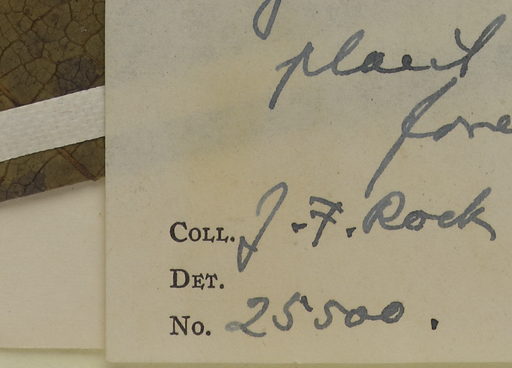 plant
fore
COLL. J. F. Rock
DET.
No. 25500.